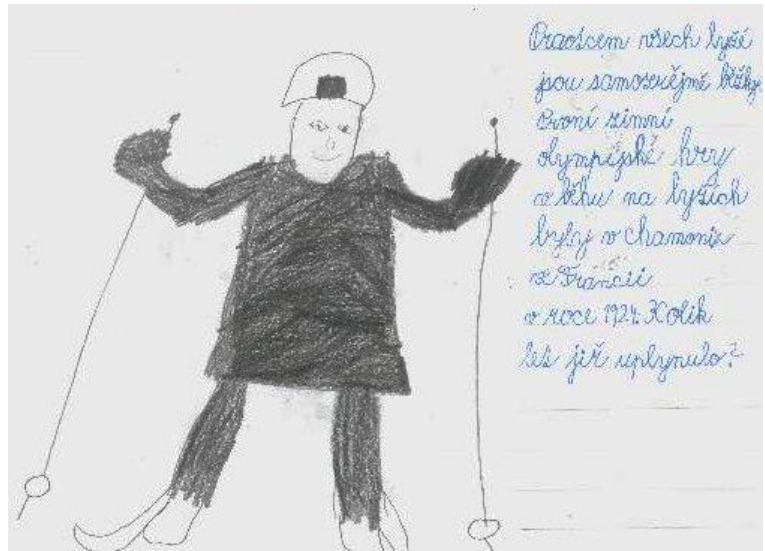 Praotcem všech lyží
jsou samozřejmě běžky.
První zimní
olympijské hry
v běhu na lyžích
byly v Chamonix
ve Francii
v roce 1924. Kolik
let již uplynulo?